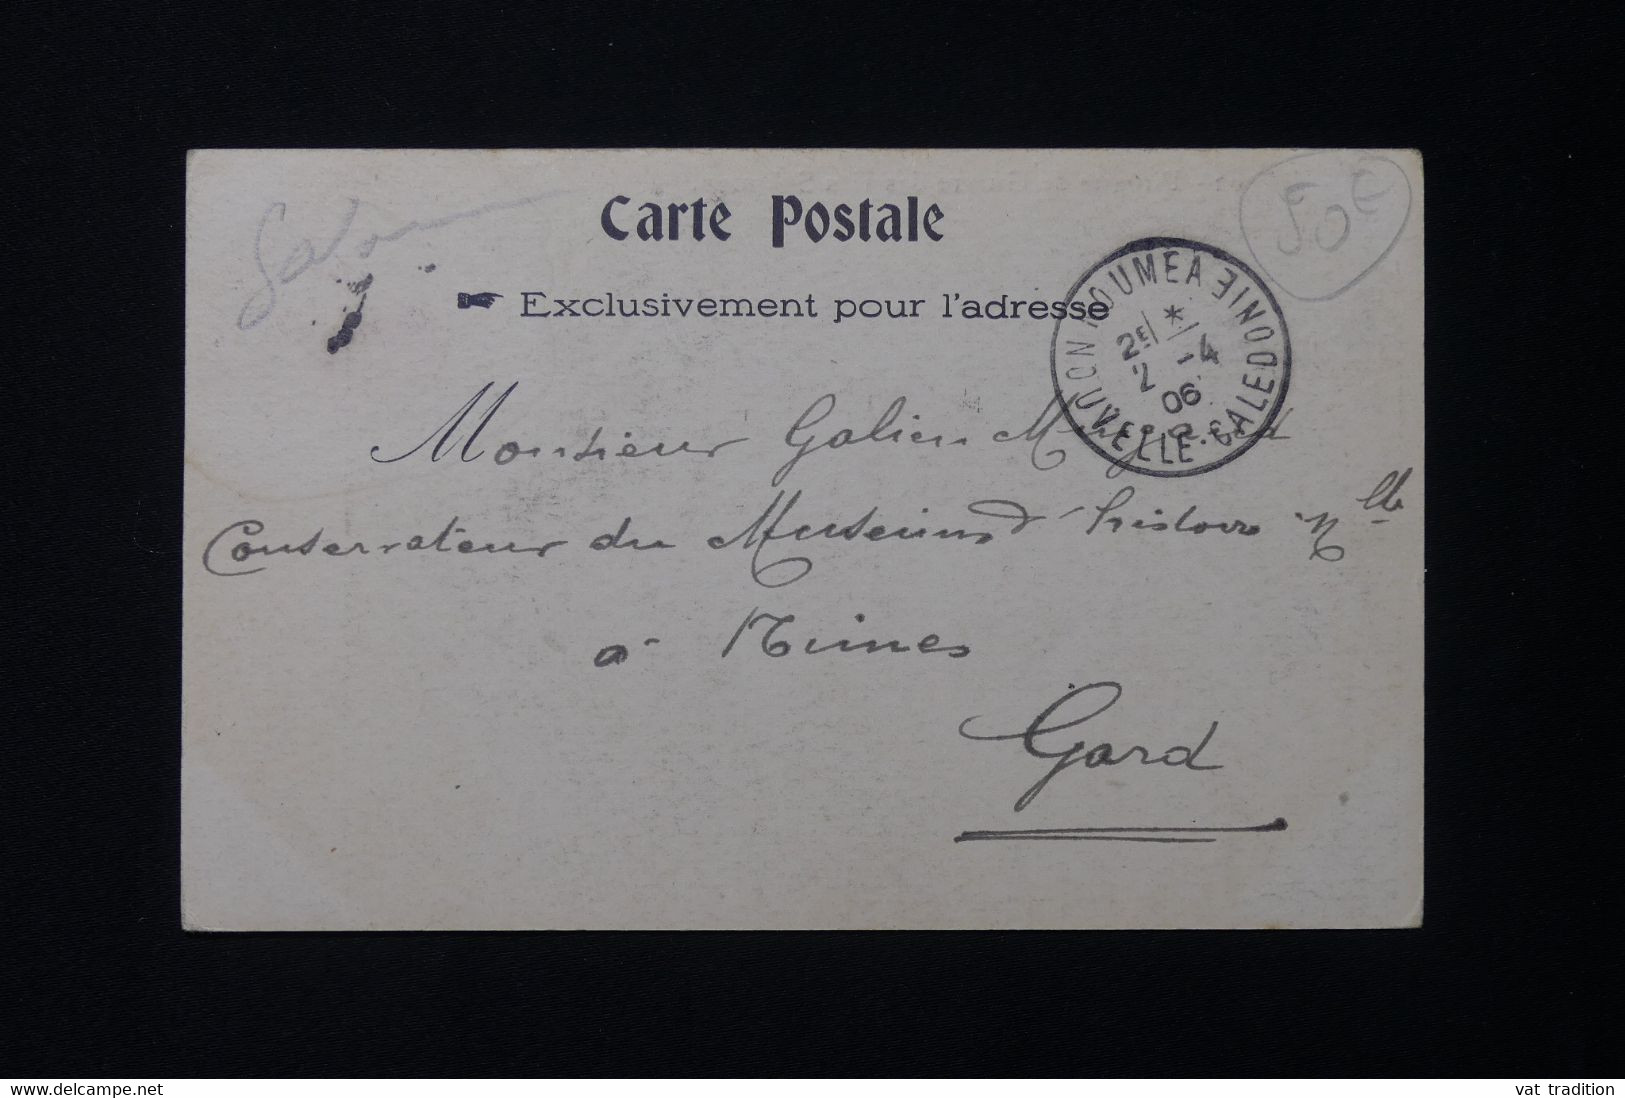 50€
Carte Postale
Exclusivement pour l'adresse
NOUMEA
NOUVELLE-CALEDONIE
2E *
2 -4
06
Monsieur Galien
Conservateur du Museum d'histoire Nlle
a Nimes
Gard
delcampe.net
vat_tradition